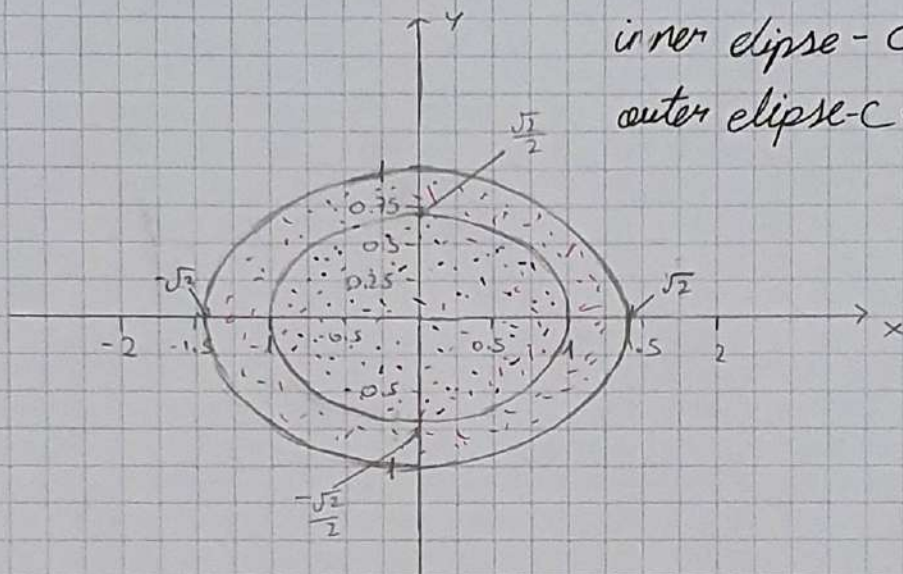 y
inner elipse - C
outer elipse - C
√2/2
1
0.75
0.5
0.25
-√2
√2
-2
-1.5
-1
-0.5
0.5
1
1.5
2
x
-0.5
-1
-√2/2